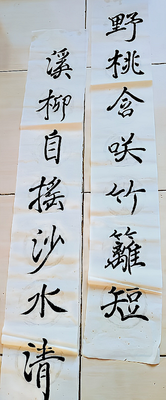 野桃含咲竹籬短
溪柳自搖沙水清